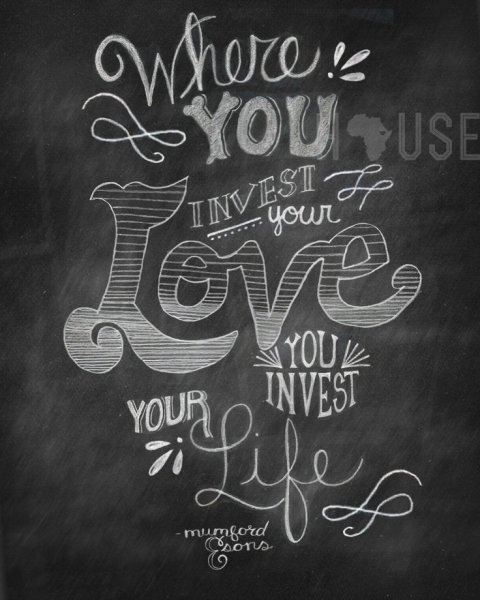 Where
YOU
INVEST
your
Love
YOU
INVEST
YOUR
Life
-mumford
& sons
USE